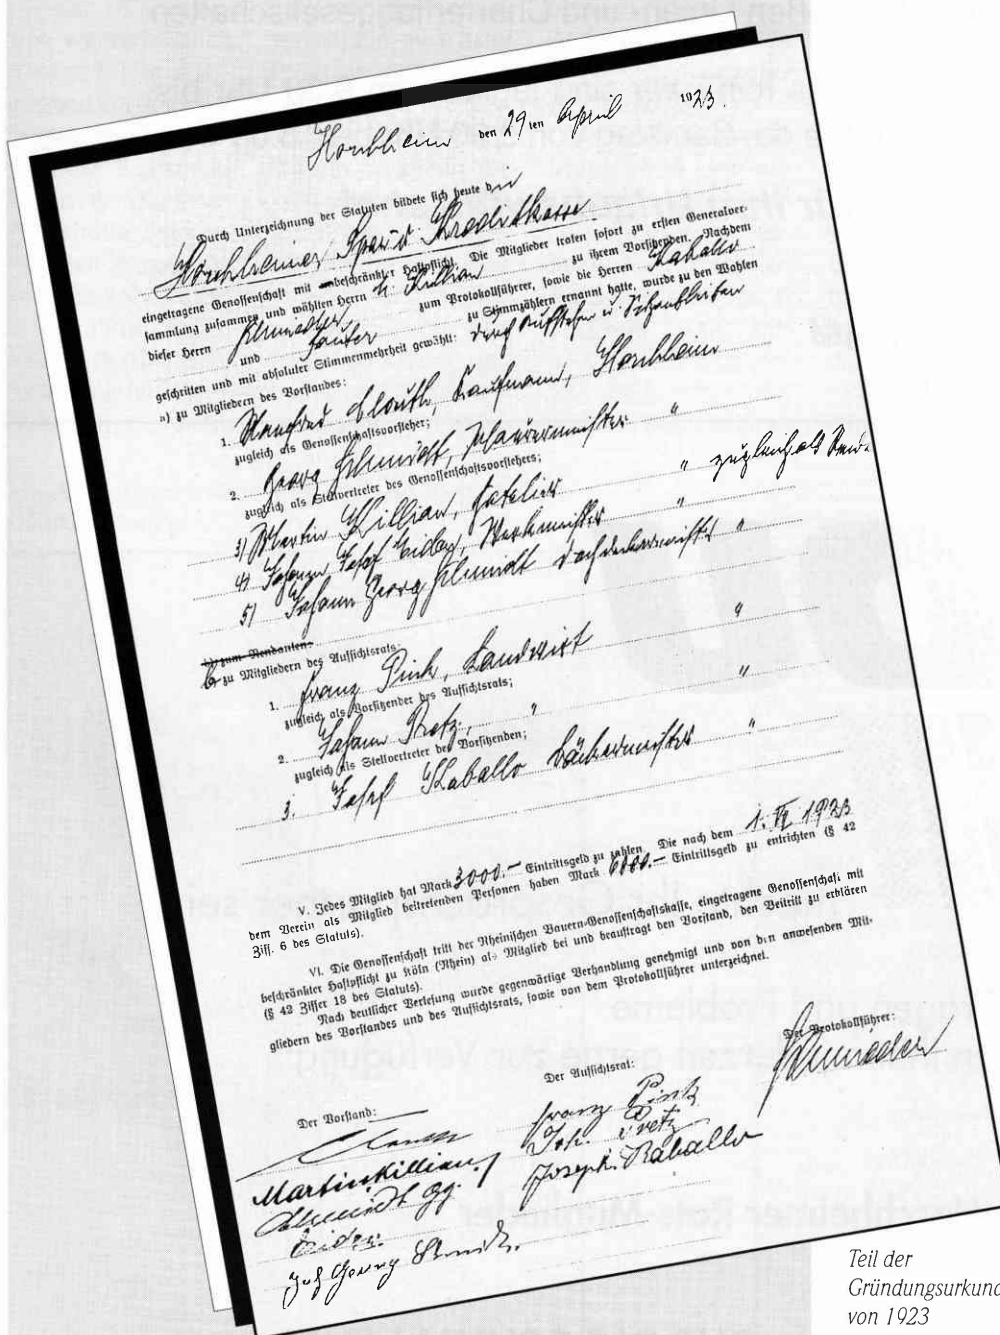 Horchheim den 29ten April 1923.
Durch Unterzeichnung der Statuten bildete sich heute die
Horchheimer Spar- u. Kreditkasse
eingetragene Genossenschaft mit beschränkter Haftpflicht. Die Mitglieder traten sofort zu ersten Generalver-
sammlung zusammen und wählten Herrn M. Killian zu ihrem Vorsitzenden. Nachdem
dieser Herrn Schmieder zum Protokollführer, sowie die Herren Kaballo
und Sauter zu Stimmzählern ernannt hatte, wurde zu den Wahlen
geschritten und mit absoluter Stimmenmehrheit gewählt: durch Aufstehen u. Sitzenbleiben
a) zu Mitgliedern des Vorstandes:
1. Kaufmann, Horchheim
zugleich als Genossenschaftsvorsteher;
2. Georg Schmidt, Maurermeister "
zugleich als Stellvertreter des Genossenschaftsvorstehers;
3) Martin Killian, " zugleich als
4) Johann Josef Werkmeister "
5) Johann Georg Schmidt Dachdeckermeister "
b) zum Rendanten:
b zu Mitgliedern des Aufsichtsrats:
1. Franz Pink, Landwirt "
zugleich als Vorsitzender des Aufsichtsrats;
2. Johann Pretz, " "
zugleich als Stellvertreter des Vorsitzenden;
3. Josef Kaballo Bäckermeister "
V. Jedes Mitglied hat Mark 3000.– Eintrittsgeld zu zahlen. Die nach dem 1. VI. 1923
dem Verein als Mitglied beitretenden Personen haben Mark 6000.– Eintrittsgeld zu entrichten (§ 42
Ziff. 6 des Statuts).
VI. Die Genossenschaft tritt der Rheinischen Bauern-Genossenschaftskasse, eingetragene Genossenschaft mit
beschränkter Haftpflicht zu Köln (Rhein) als Mitglied bei und beauftragt den Vorstand, den Beitritt zu erklären
(§ 42 Ziffer 18 des Statuts).
Nach deutlicher Verlesung wurde gegenwärtige Verhandlung genehmigt und von den anwesenden Mit-
gliedern des Vorstandes und des Aufsichtsrats, sowie von dem Protokollführer unterzeichnet.
Der Protokollführer:
Schmieder
Der Aufsichtsrat:
Franz Pink
Joh. Pretz
Joseph. Kaballo
Der Vorstand:
Martin Killian
Schmidt Gg.
Joh Georg Schmidt.
Teil der
Gründungsurkunde
von 1923